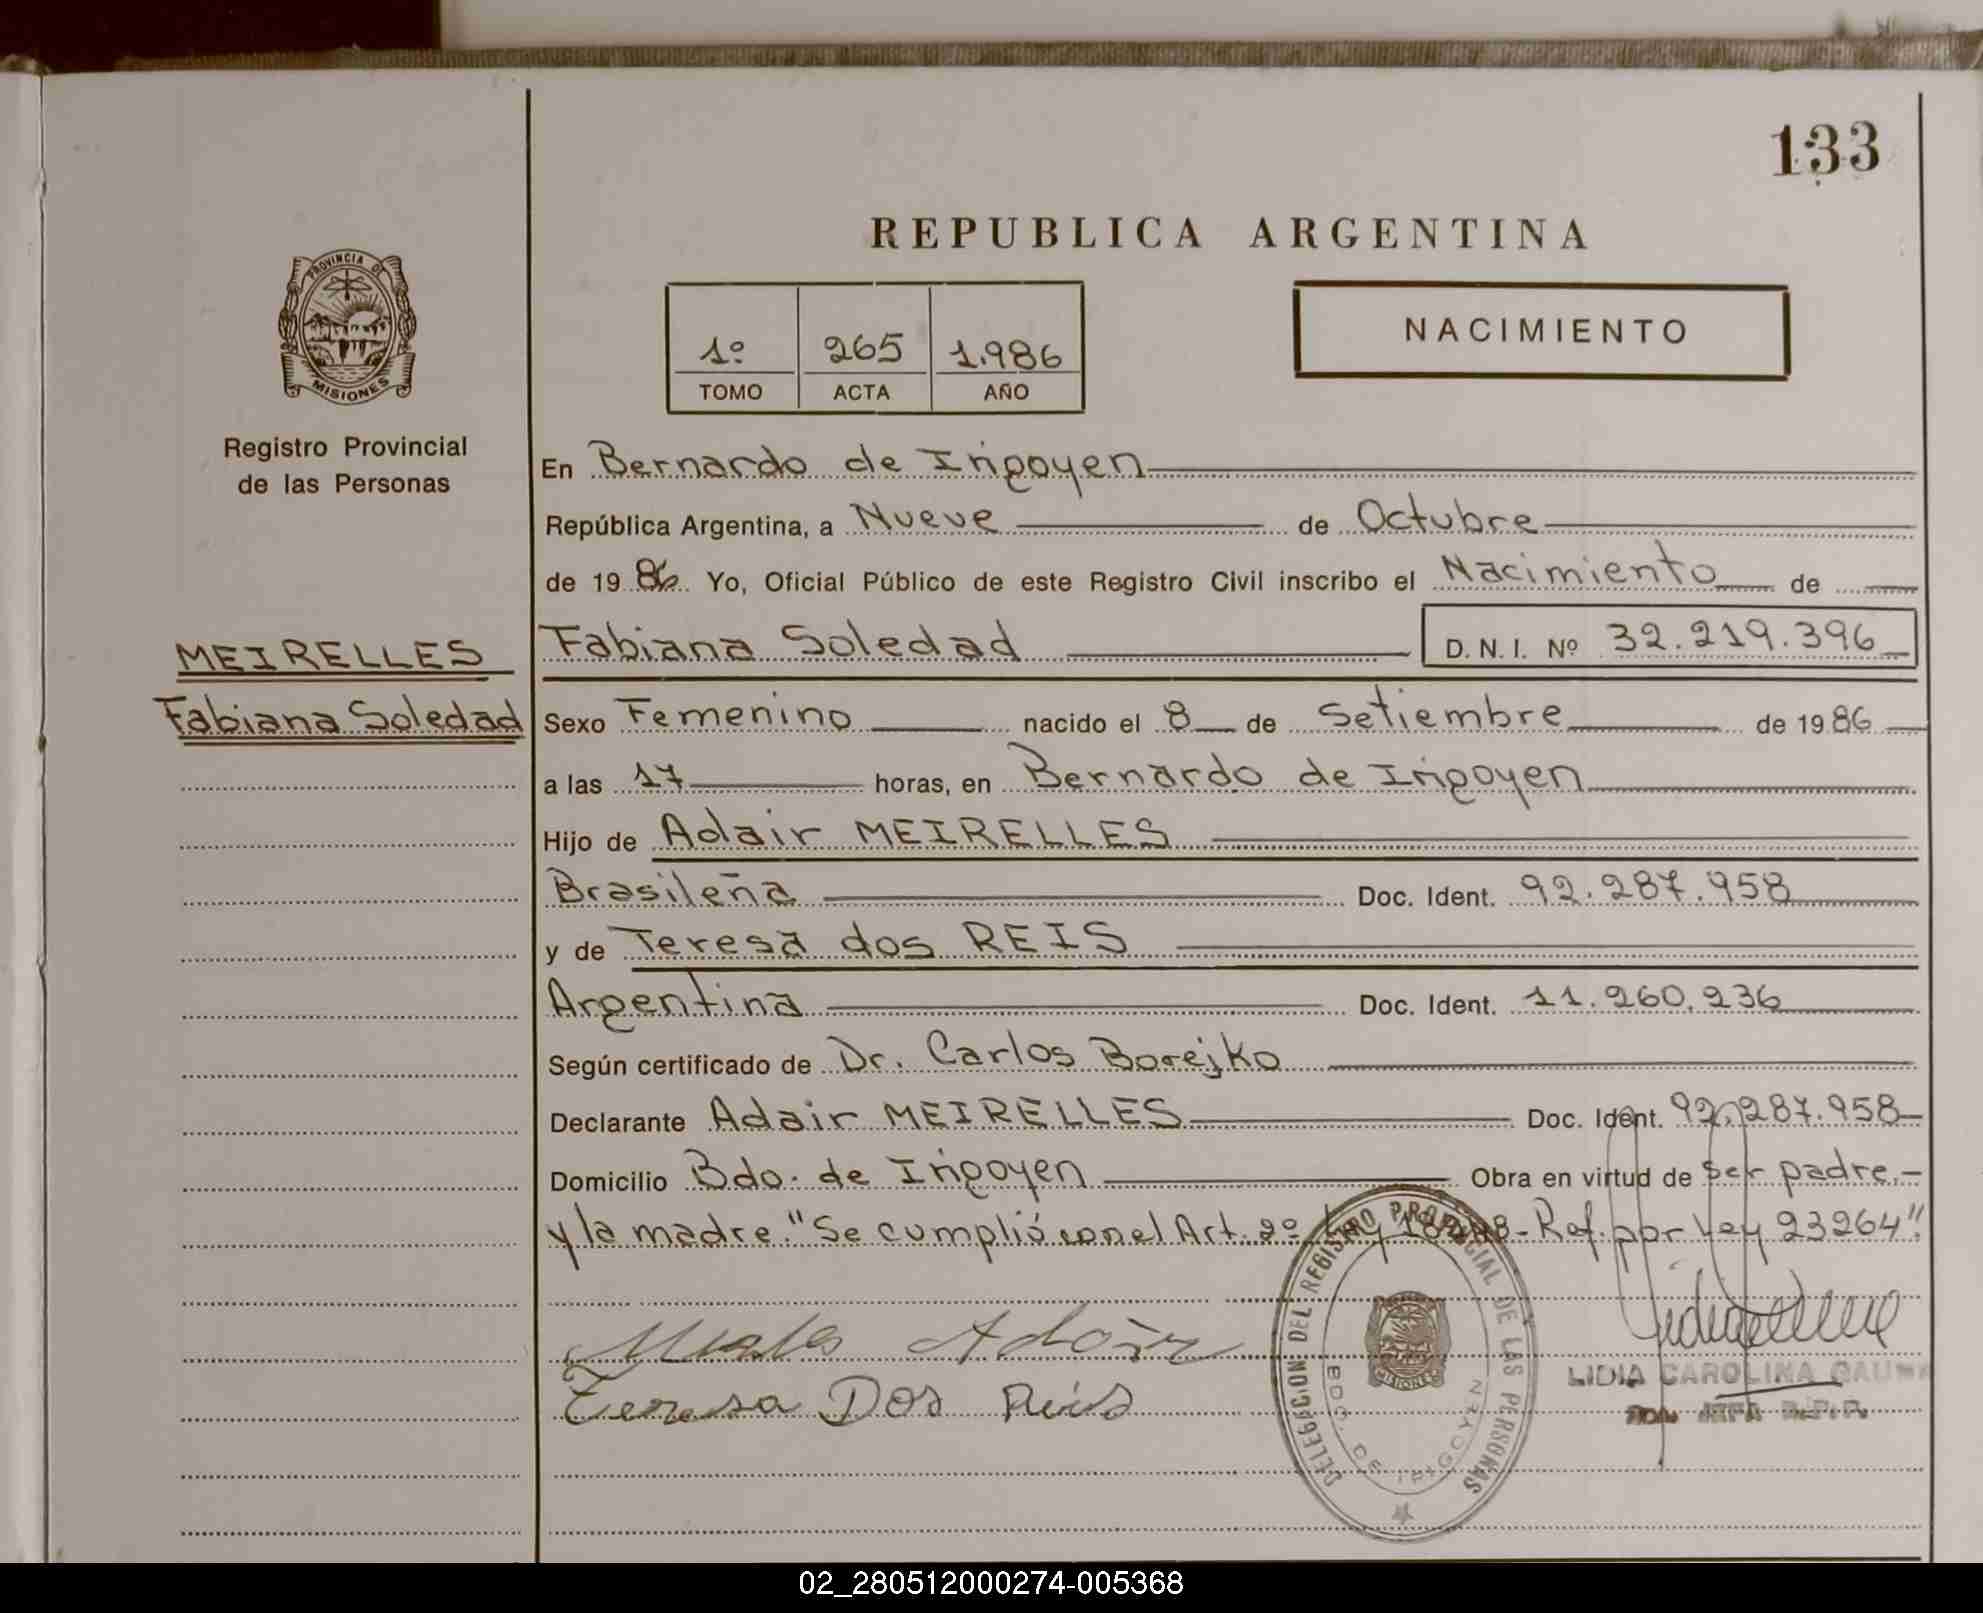 133
REPUBLICA ARGENTINA
PROVINCIA DE
MISIONES
Registro Provincial
de las Personas
1º 265 1.986
TOMO ACTA AÑO
NACIMIENTO
En Bernardo de Irigoyen
República Argentina, a Nueve de Octubre
de 1986 Yo, Oficial Público de este Registro Civil inscribo el Nacimiento de
MEIRELLES
Fabiana Soledad
Fabiana Soledad D. N. I. Nº 32.219.396
Sexo Femenino nacido el 8 de Setiembre de 1986
a las 17 horas, en Bernardo de Irigoyen
Hijo de Adair MEIRELLES
Brasileña Doc. Ident. 92.287.958
y de Teresa dos REIS
Argentina Doc. Ident. 11.260.236
Según certificado de Dr. Carlos Borejko
Declarante Adair MEIRELLES Doc. Ident. 92.287.958
Domicilio Bdo. de Irigoyen Obra en virtud de ser padre.-
y la madre. "Se cumplió con el Art. 2º Ley - Ref. por Ley 23264".
Adair
Teresa Dos Reis
DELEGACION DEL REGISTRO PROVINCIAL DE LAS PERSONAS
BDO. DE IRIGOYEN
MISIONES
LIDIA CAROLINA
JEFA R.P.P.
02_280512000274-005368